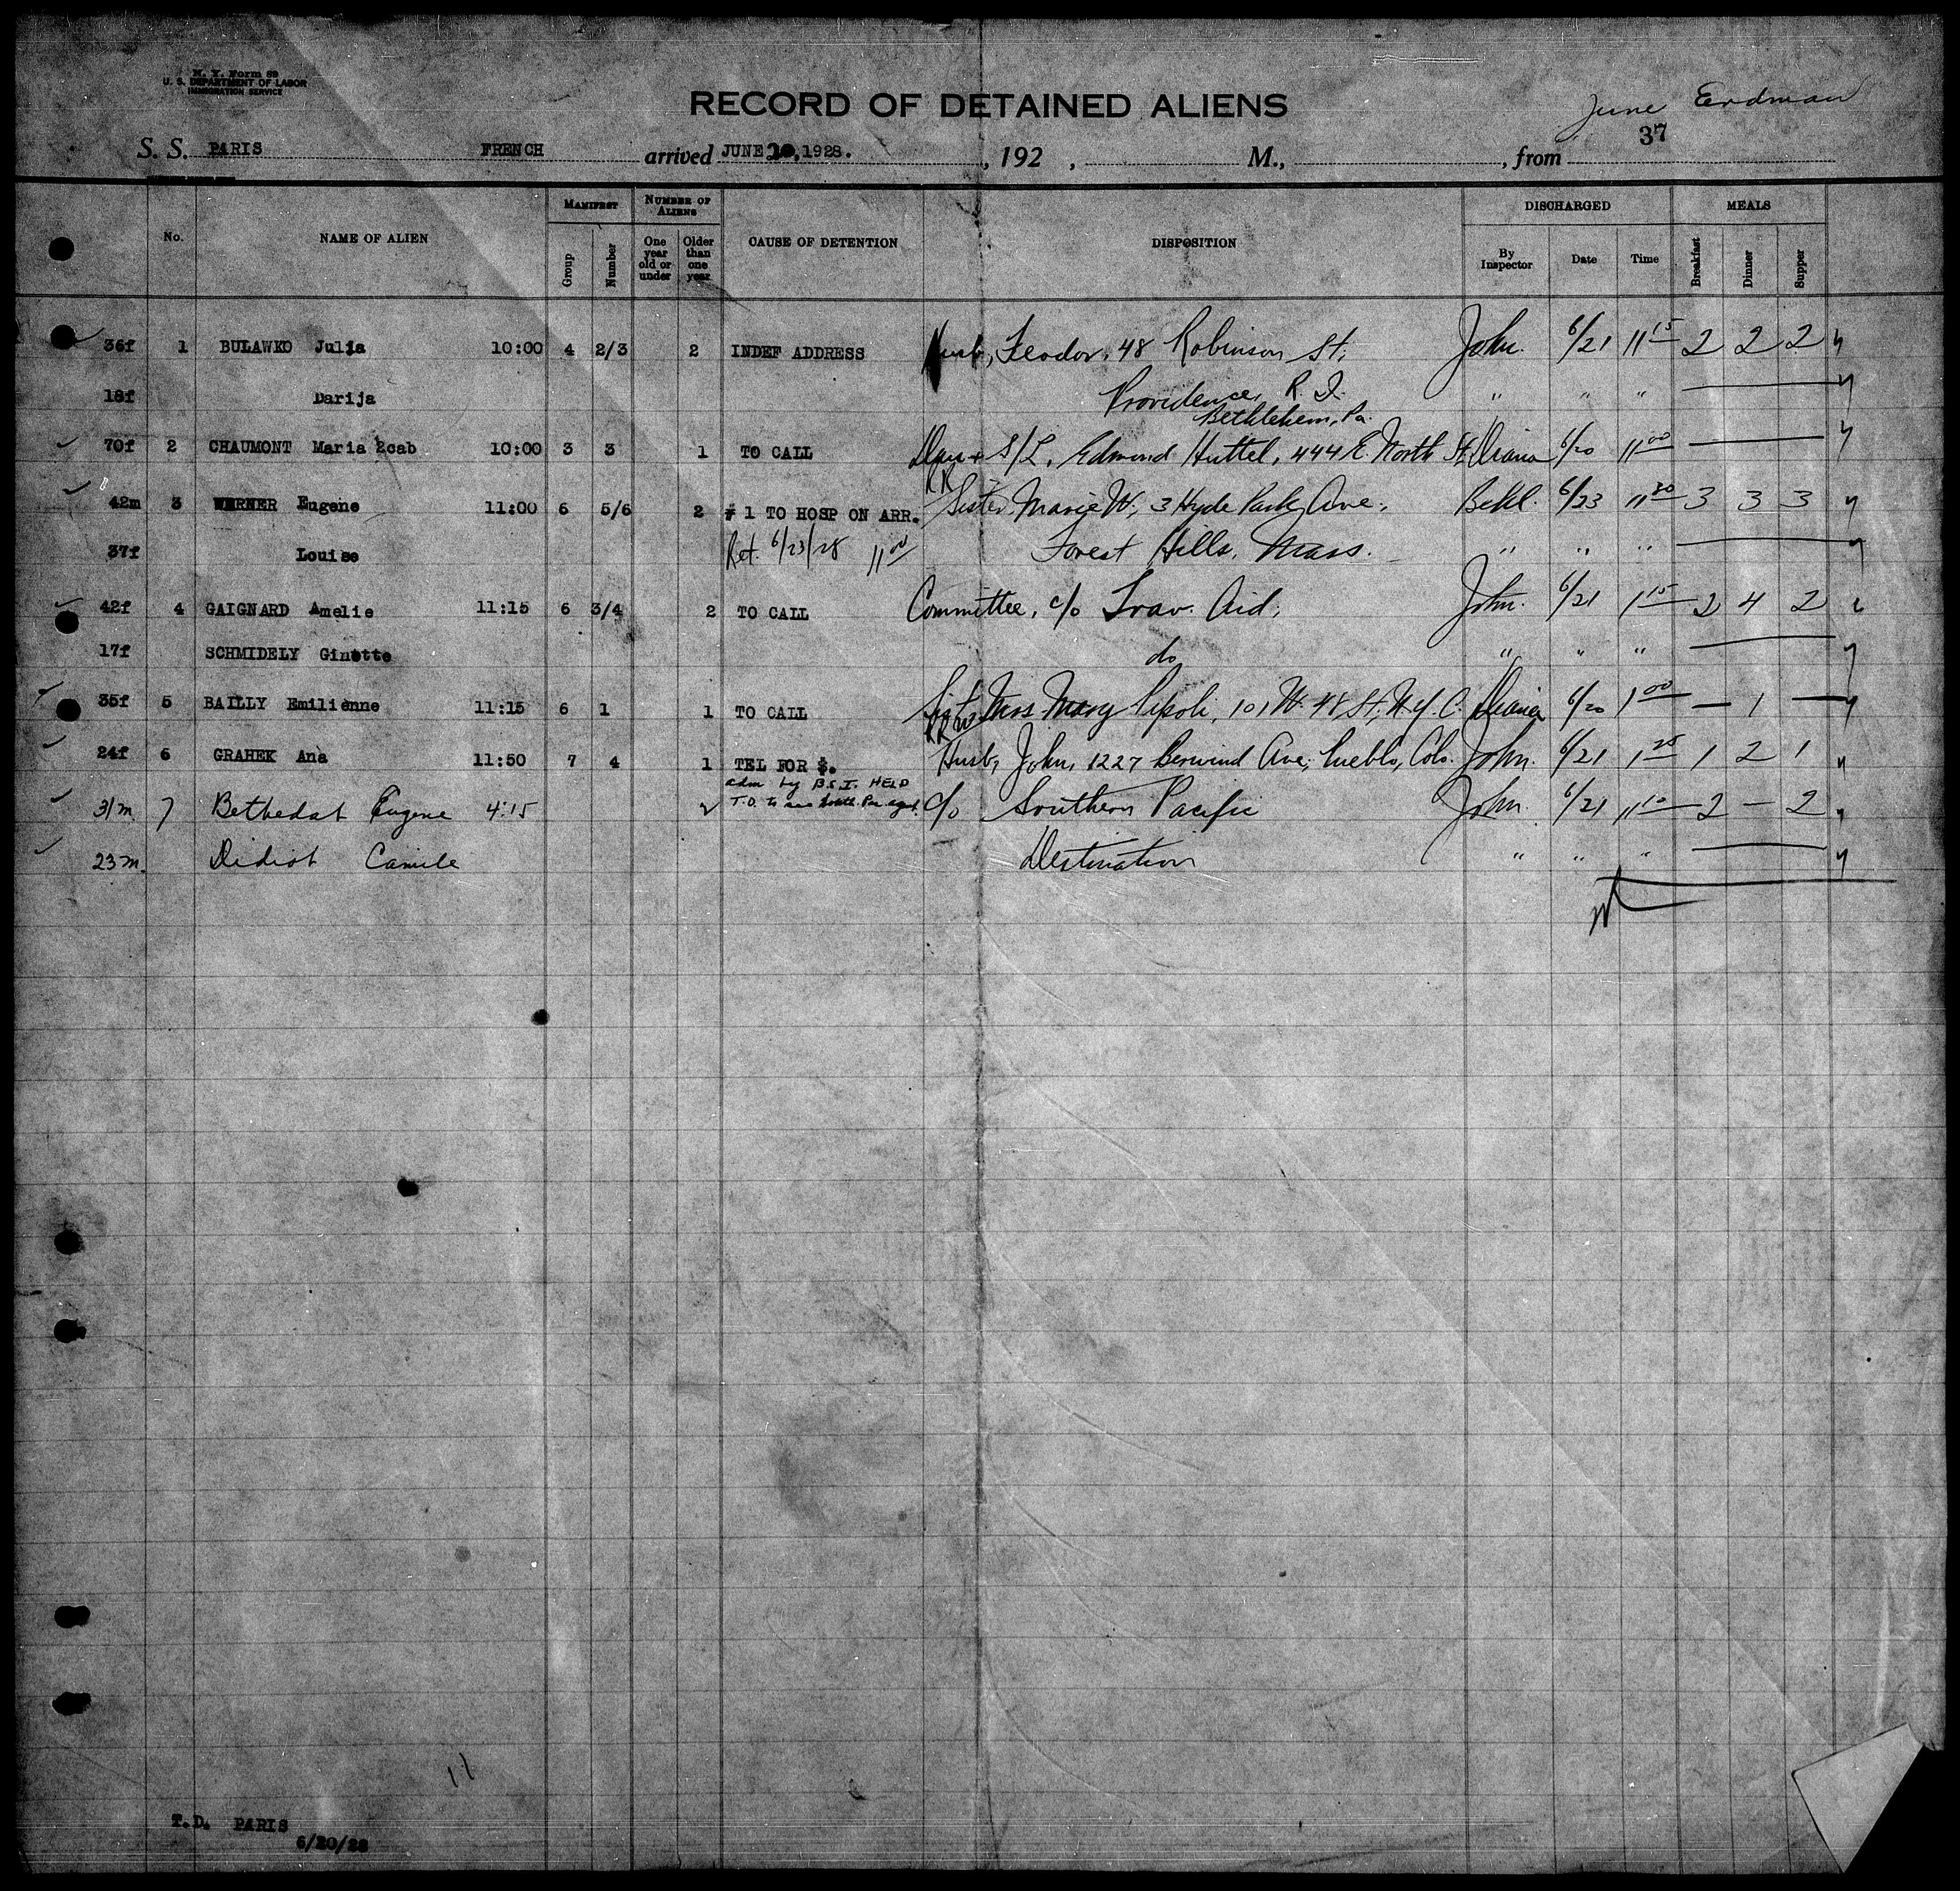 N. Y. Form 89
U. S. DEPARTMENT OF LABOR
IMMIGRATION SERVICE
RECORD OF DETAINED ALIENS
June Erdman
37
S. S. PARIS FRENCH arrived JUNE 20, 1928. , 192 , M., , from
MANIFEST NUMBER OF ALIENS DISCHARGED MEALS
No. NAME OF ALIEN Group Number One year old or under Older than one year CAUSE OF DETENTION DISPOSITION By Inspector Date Time Breakfast Dinner Supper
36f 1 BULAWKO Julia 10:00 4 2/3 2 INDEF ADDRESS Husb, Feodor, 48 Robinson St, John. 6/21 11 15 2 2 2
18f Darija Providence, R. I. " " "
Bethlehem, Pa.
70f 2 CHAUMONT Maria 10:00 3 3 1 TO CALL Dau + S/L, Edmond Huttel, 444 E. North St. 6/20 11 00
RR
42m 3 WERNER Eugene 11:00 6 5/6 2 # 1 TO HOSP ON ARR. Sister Marie W, 3 Hyde Park Ave, 6/23 11 30 3 3 3
37f Louise Ret. 6/23/28 11 00 Forest Hills, Mass. " " "
42f 4 GAIGNARD Amelie 11:15 6 3/4 2 TO CALL Committee, c/o Trav. Aid, John. 6/21 1 15 2 4 2
17f SCHMIDELY Ginette do " " "
35f 5 BAILLY Emilienne 11:15 6 1 1 TO CALL Miss Mary 101 W. 48 St, N.Y.C. 6/20 1 00 — 1 —
24f 6 GRAHEK Ana 11:50 7 4 1 TEL FOR $. Husb, John, 1227 Berwind Ave, Pueblo, Colo. John. 6/21 1 25 1 2 1
adm by B.S.I. HELD
31m 7 Bethedat Eugene 4:15 2 T.D. to see South. Pac agt. c/o Southern Pacific John. 6/21 11 10 2 — 2
23m. Didiot Camile Destination " " "
T.D. PARIS
6/20/28